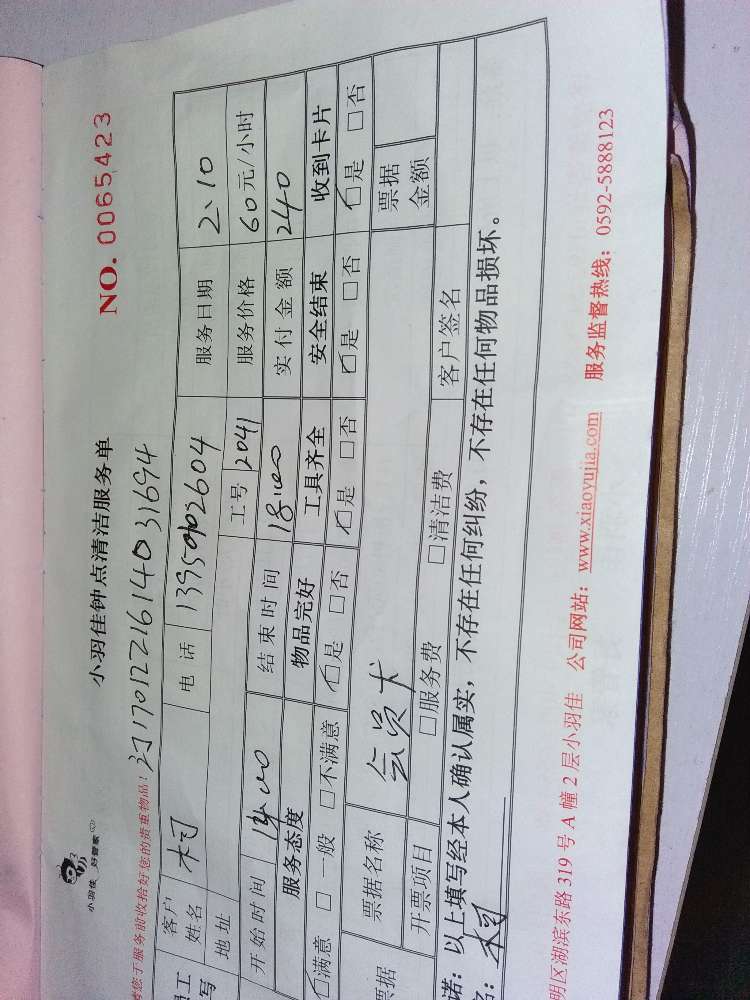 小羽佳 好管家
小羽佳钟点清洁服务单
NO. 0065423
您于服务前收拾好您的贵重物品!
客户姓名 柯 电话 13950102604 服务日期 2、10
地址 工号 2041 服务价格 60元/小时
开始时间 14:00 结束时间 18:00 实付金额 240
服务态度 物品完好 工具齐全 安全结束 收到卡片
□满意 □一般 □不满意 □是 □否 □是 □否 □是 □否 □是 □否
票据名称 会员卡 票据金额
开票项目 □服务费 □清洁费 客户签名
诺:以上填写经本人确认属实,不存在任何纠纷,不存在任何物品损坏。
名:柯
明区湖滨东路 319 号 A 幢 2 层小羽佳 公司网站:www.xiaoyujia.com 服务监督热线:0592-5888123